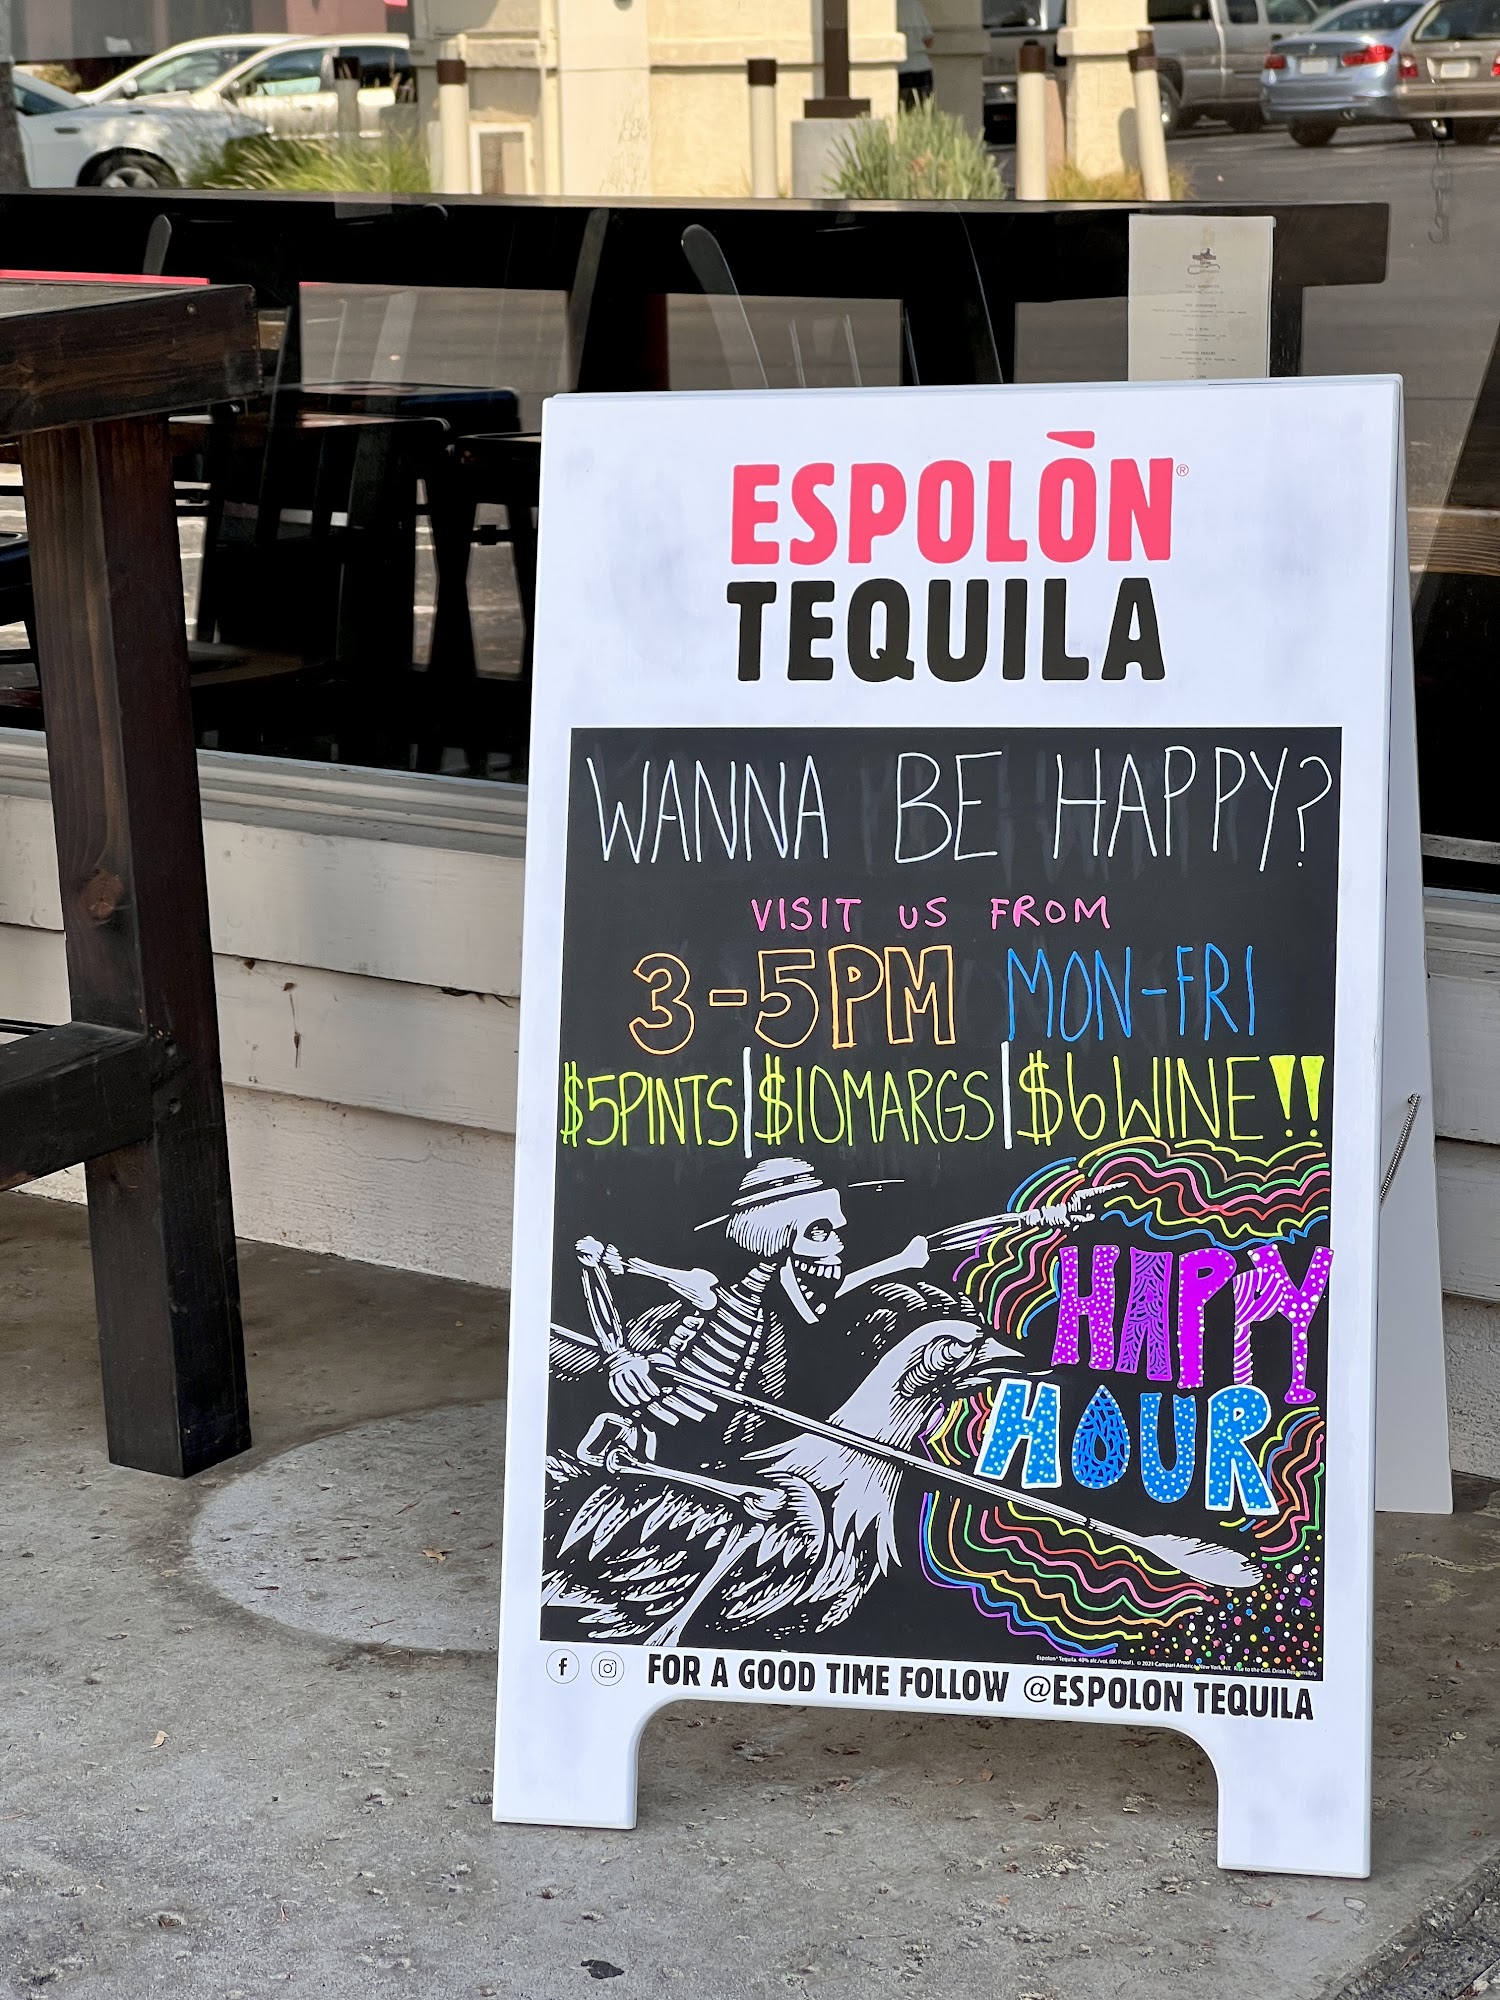 ESPOLÒN®
TEQUILA
WANNA BE HAPPY?
VISIT US FROM
3-5PM MON-FRI
$5 PINTS | $10 MARGS | $6 WINE!!
HAPPY
HOUR
Espolòn® Tequila. 40% alc./vol. (80 Proof). © 2021 Campari America, New York, NY. Rise to the Call. Drink Responsibly.
FOR A GOOD TIME FOLLOW @ESPOLON TEQUILA